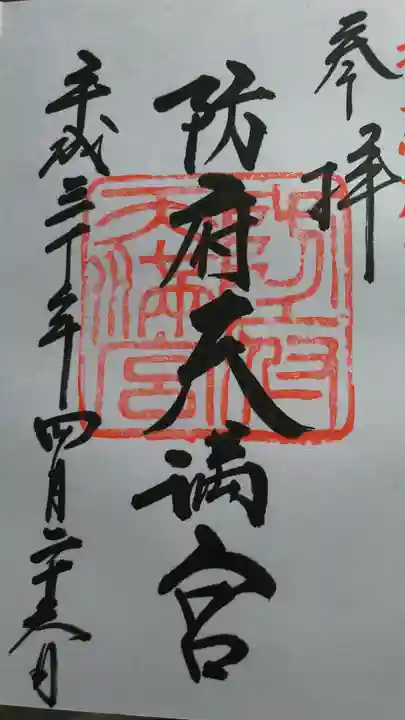 奉拝
防府天満宮
平成三十年四月二十六日
防府
天満宮